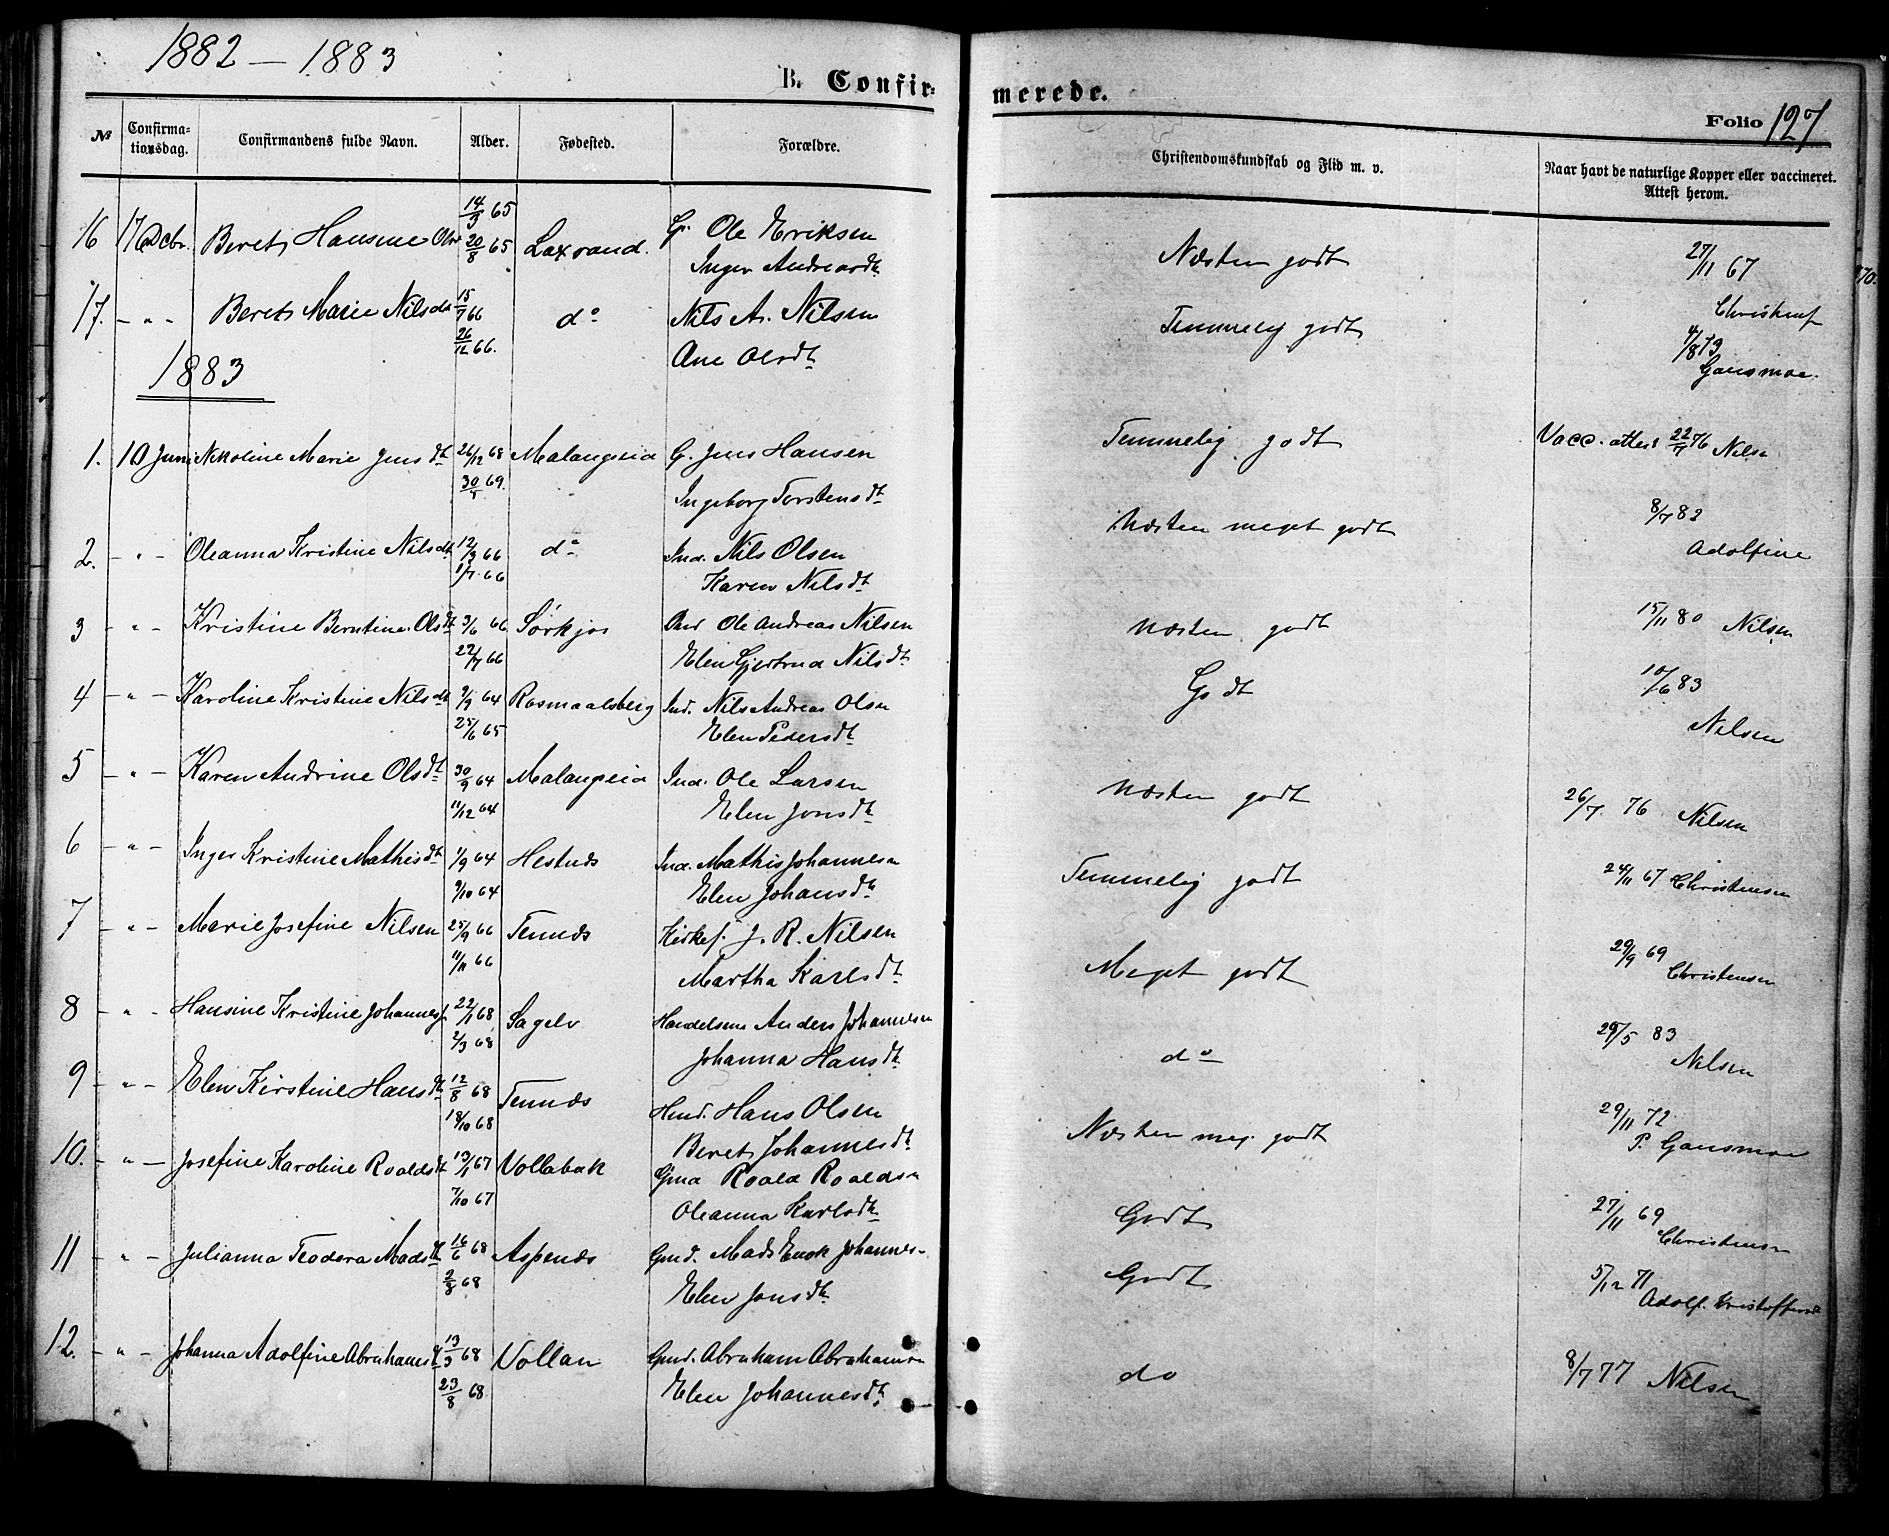 1882 – 1883
B. Confir-
merede.
Folio 127
No
Confirma-
tionsdag.
Confirmandens fulde Navn.
Alder.
Fødested.
Forældre.
Christendomskundskab og Flid m. v.
Naar havt de naturlige Kopper eller vaccineret.
Attest herom.
14/3 65
16 17 Dcbr. Beret Hansine Ols 20/8 65 Laxvand. G. Ole Eriksen Næsten godt 27/11 67
Inger Andreasdt. Christens
17. – " – Beret Marie Nilsdt 15/7 66 do Nils A. Nilsen Temmelig godt 4/8 73
26/12 66. Ane Olsdt Gausmoe.
1883
1. 10 Juni Nikoline Marie Jensdt 26/12 68 Malangseid G. Jens Hansen Temmelig godt Vacc. attest 22/7 76 Nilsen
30/5 69. Ingeborg Torstensdt
2. – " – Oleanna Kristine Nilsdt 12/3 66 do Ind. Nils Olsen Næsten meget godt 8/7 82
1/7 66 Karen Nilsdt Adolfine
3 – " – Kristine Berntine Olsdt 3/6 66 Sørkjos Ole Andreas Nilsen Næsten godt 15/11 80 Nilsen
22/7 66 Elen Gjertrud Nilsdt
4 – " – Karoline Kristine Nilsdt 9/9 64 Rosmaalsberg Ind. Nils Andreas Olsen Godt 10/6 83
25/6 65 Elen Pedersdt Nilsen
5 – " – Karen Andrine Olsdt 30/9 64 Malangseid Ind. Ole Larsen Næsten godt 26/7 76 Nilsen
11/12 64 Elen Jonsdt
6 – " – Inger Kristine Mathisdt 1/9 64 Hestnæs Ind. Mathis Johannesn Temmelig godt 24/11 67 Christensen
9/10 64 Elen Johansdt
7 – " – Marie Josefine Nilsen 25/9 66 Tennæs Kirkes. J. R. Nilsen Meget godt 29/9 69
11/11 66 Martha Karlsdt Christensen
8 – " – Hansine Kristine Johannes 22/1 68 Sagelv Handelsm Anders Johannesen do 29/5 83
2/3 68 Johanna Hansdt Nilsen
9 – " – Elen Kirstine Hansdt 12/8 68 Tennæs Hans Olsen Næsten meg. godt 29/11 72
18/10 68 Beret Johannesdt P. Gausmoe
10. – " – Josefine Karoline Roaldsdt 13/1 67 Vollabak Gmd Roald Roaldsn Godt 27/11 69
7/10 67 Oleanna Karlsdt Christensen
11 – " – Julianna Teodora Madsdt 16/6 68 Aspenæs Gmd. Mads Enok Johannes Godt 5/12 71
2/8 68 Elen Jonsdt Adolf. Kristoffersdt
12. – " – Johanna Adolfine Abrahamsdt 13/3 68 Vollan Gmd. Abraham Abrahamsn do 8/7 77 Nilsen
23/8 68 Elen Johannesdt.